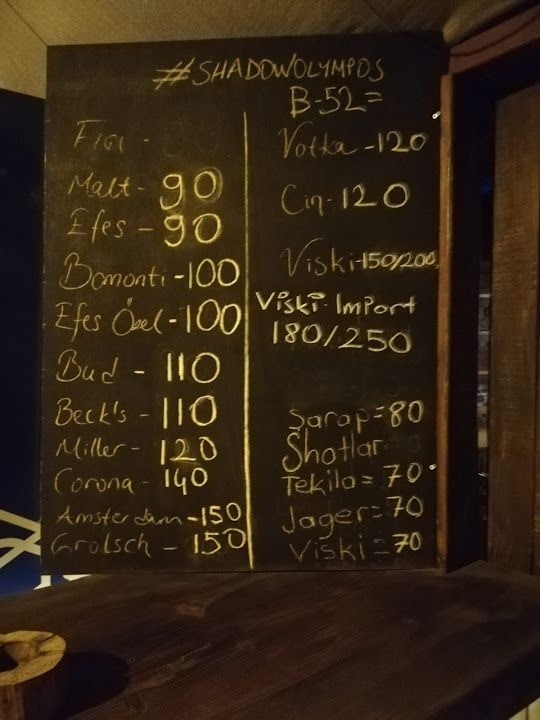 #SHADOWOLYMPOS
B-52=
Fıçı -
Malt - 90
Efes - 90
Bomonti - 100
Efes Özel - 100
Bud - 110
Beck's - 110
Miller - 120
Corona - 140
Amsterdam - 150
Grolsch - 150
Votka - 120
Cin - 120
Viski - 150/200
Viski Import
180/250
Şarap = 80
Shotlar
Tekila = 70
Jager = 70
Viski = 70